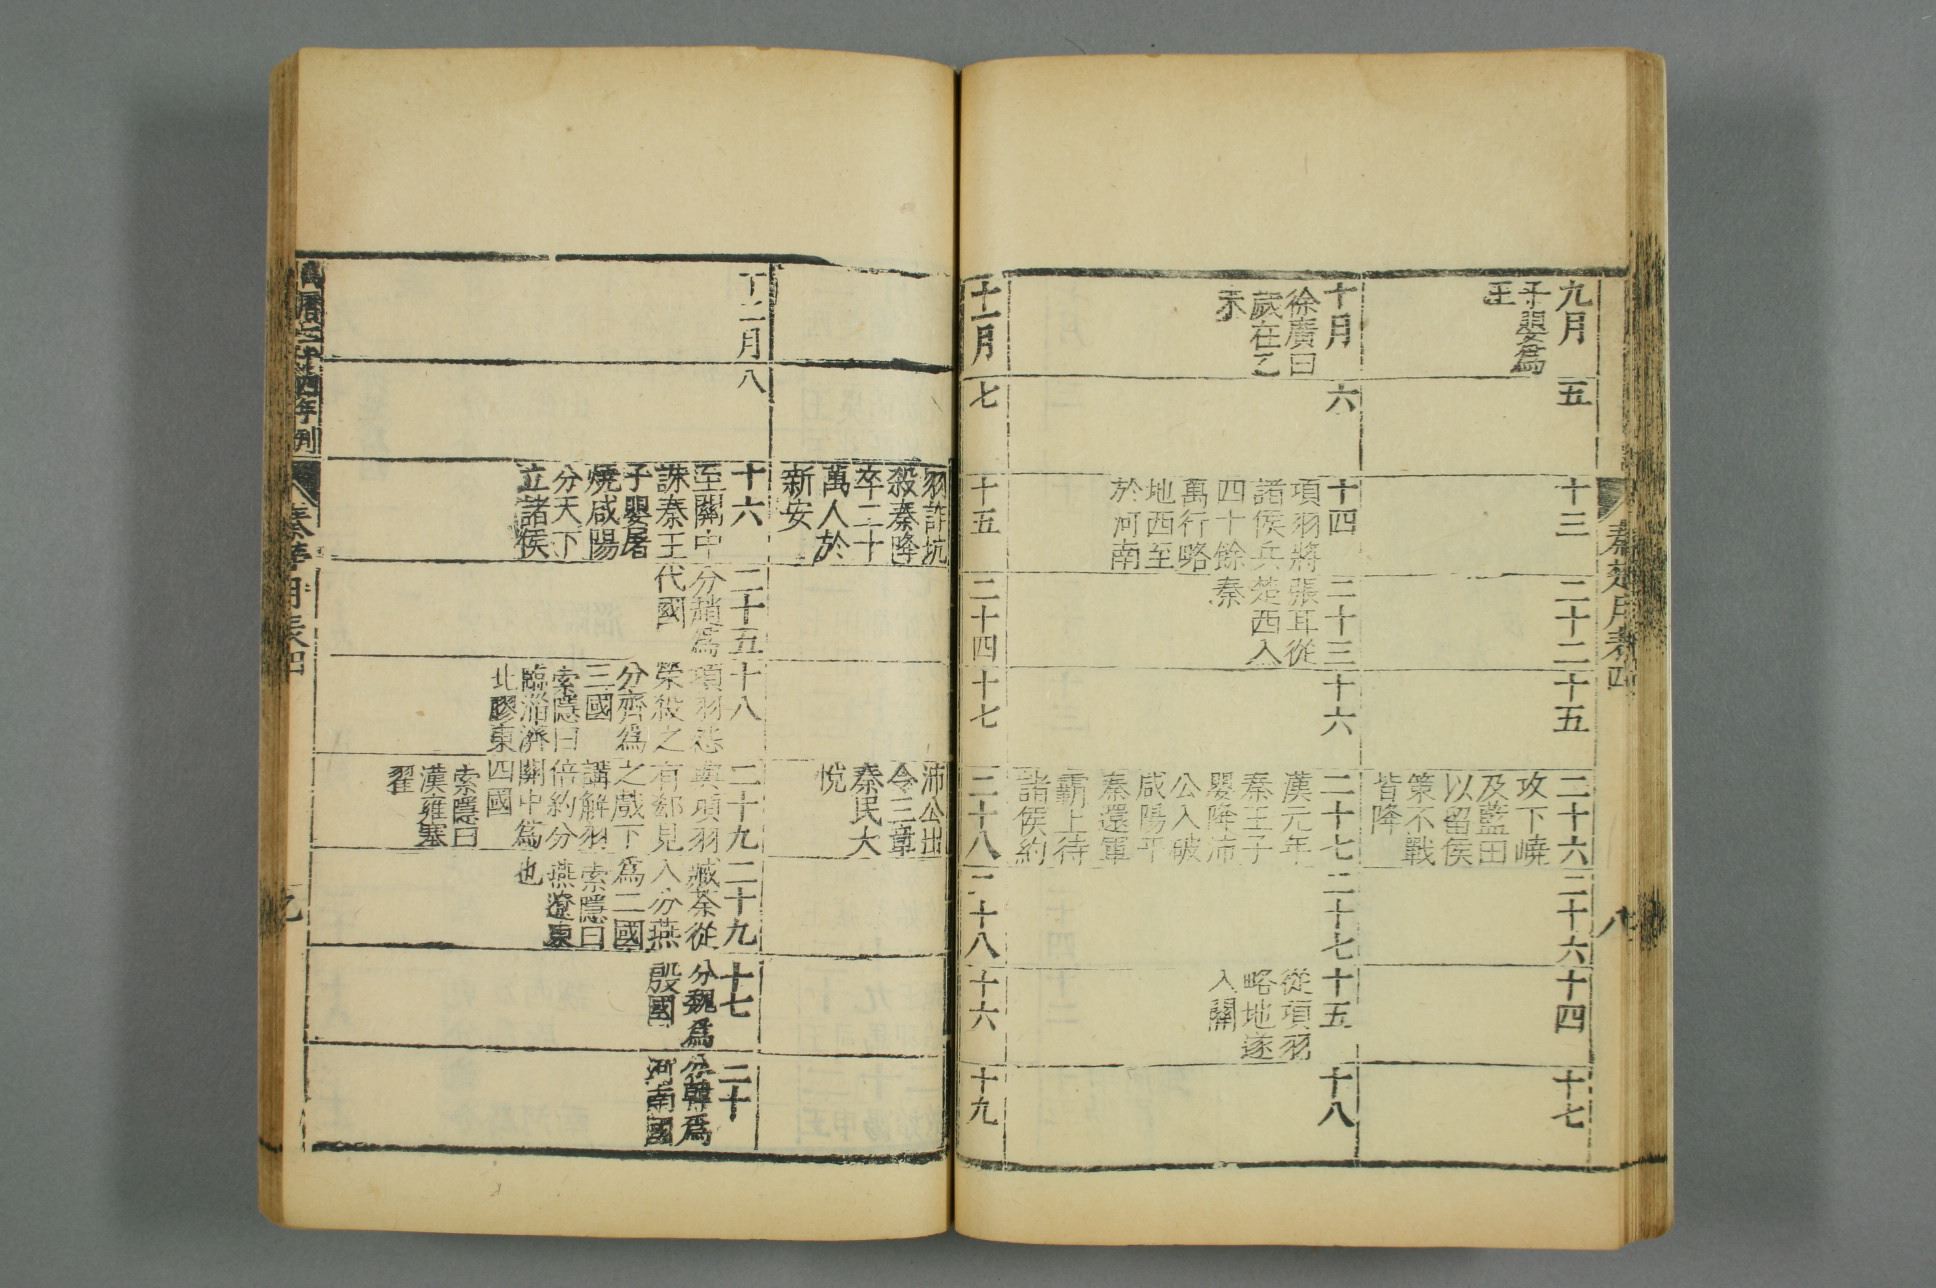 秦楚月表四
八
九月
子嬰爲
王
五
十三
二十二
十五
二十六
攻下嶢
及藍田
以留侯
策不戰
皆降
二十六
十四
十七
十月
徐廣曰
歲在乙
未
六
十四
項羽將
諸侯兵
四十餘
萬行略
地西至
於河南
二十三
張耳從
楚西入
秦
十六
二十七
漢元年
秦王子
嬰降沛
公入破
咸陽平
秦還軍
霸上待
諸侯約
二十七
十五
從項羽
略地遂
入關
十八
十一月
七
十五
二十四
十七
二十八
二十八
十六
十九
羽詐坑
殺秦降
卒二十
萬人於
新安
沛公出
令三章
秦民大
悅
十二月
八
十六
至關中
誅秦王
子嬰屠
燒咸陽
分天下
立諸侯
二十五
分趙爲
代國
十八
項羽怨
榮殺之
分齊爲
三國
索隱曰
臨淄濟
北膠東
二十九
與項羽
有郄見
之戲下
講解羽
倍約分
關中爲
四國
索隱曰
漢雍塞
翟
二十九
臧荼從
入分燕
爲二國
索隱曰
燕遼東
也
十七
分魏爲
殷國
二十
分韓爲
河南國
萬曆二十四年刊
秦楚月表四
九